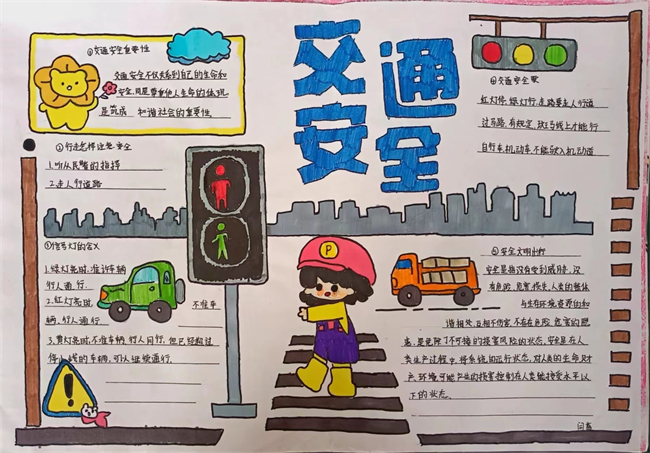 交通
安全
交通安全重要性
交通安全不仅关系到自己的生命和
安全,同是尊重他人生命的体现.
是筑成 和谐社会的重要性.
①行走怎样注意安全
1.听从民警的指挥
2.走人行道路
③信号灯的含义
1.绿灯亮时,准许车辆
行人通行.
2.红灯亮时, 不准车
辆、行人通行
3.黄灯亮时,不准车辆、行人同行,但已经超过
停止线的车辆,可以继续通行.
P
④交通安全歌
红灯停,绿灯行,走路要走人行道
过马路,有规定,斑马线上才能行
自行车,机动车,不能驶入机动道
安全文明出行
安全是指没有受到威胁,没
有危险、危害、损失.人类的整体
与生存环境资源的和
谐相处,互相不伤害,不存在危险、危害的隐
患,是免除了不可接的损害风险的状态,安全是在人
类生产过程中,将系统的运行状态,对人类的生命、财
产、环境可能产生的损害控制在人类能接受水平以
下的状态.